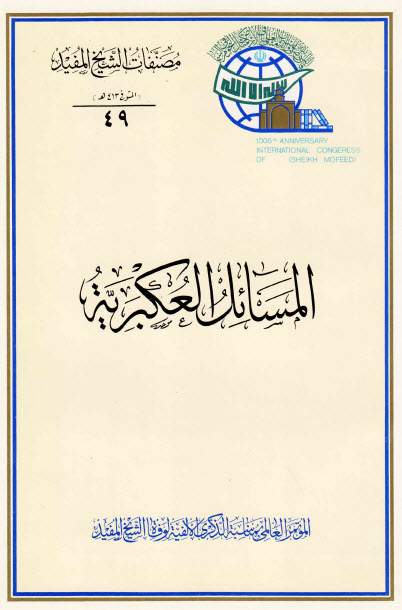 مصنفات الشيخ المفيد
(المتوفى ٤١٣ هـ)
٤٩
1000TH ANNIVERSARY
INTERNATIONAL CONGERESS
OF (SHEIKH MOFEED)
المَسَائِلُ العُكبَرِيَّةُ
المؤتمر العالمي بمناسبة الذكرى الألفية لوفاة الشيخ المفيد